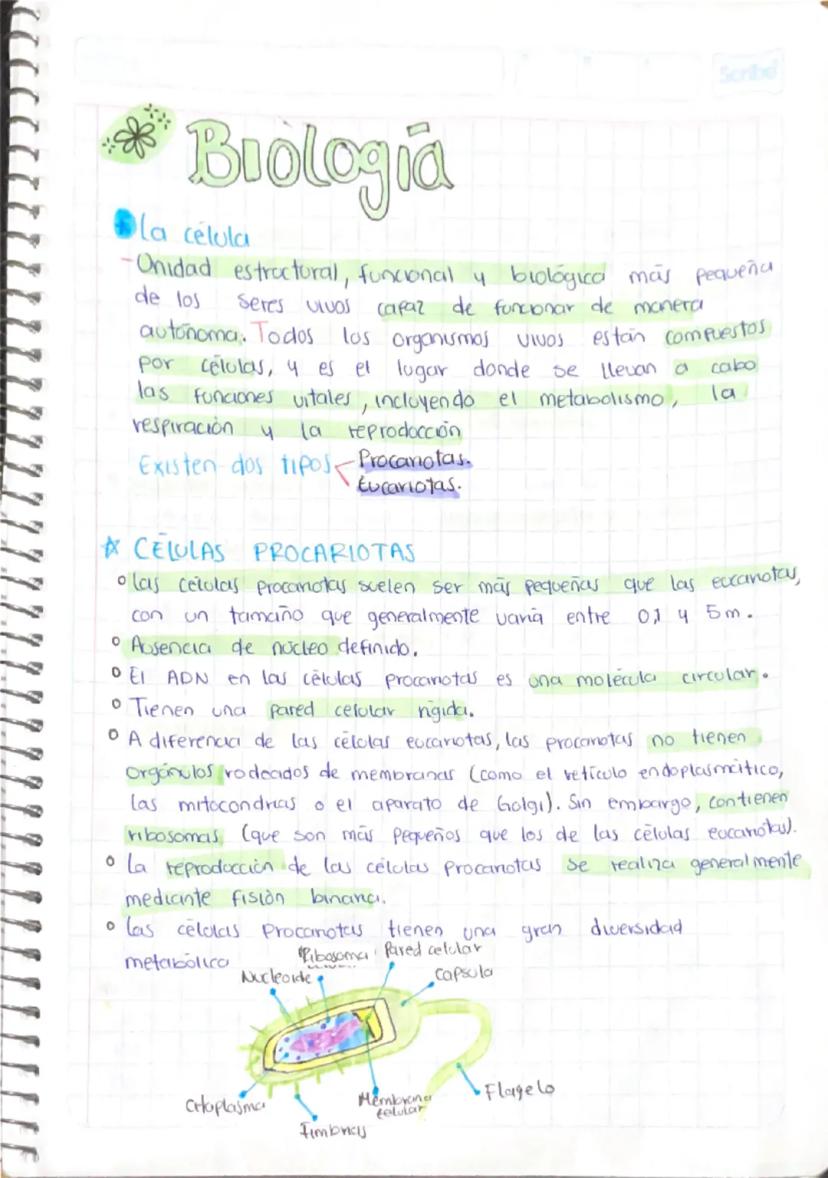 Scribe
Biología
La célula
- Unidad estructural, funcional y biológica más pequeña
de los seres vivos capaz de funcionar de manera
autónoma. Todos los organismos vivos están compuestos
por células, y es el lugar donde se llevan a cabo
las funciones vitales, incluyendo el metabolismo, la
respiración y la reproducción
Existen dos tipos < Procariotas.
Eucariotas.
☆ CÉLULAS PROCARIOTAS
° Las células procariotas suelen ser más pequeñas que las eucariotas,
con un tamaño que generalmente varía entre 0,1 y 5m.
° Ausencia de núcleo definido.
° El ADN en las células procariotas es una molécula circular.
° Tienen una pared celular rígida.
° A diferencia de las células eucariotas, las procariotas no tienen
orgánulos rodeados de membranas (como el retículo endoplasmático,
las mitocondrias o el aparato de Golgi). Sin embargo, contienen
ribosomas (que son más pequeños que los de las células eucariotas).
° La reproducción de las células procariotas se realiza generalmente
mediante fisión binaria.
° Las células procariotas tienen una gran diversidad
metabólica
Ribosoma Pared celular
Nucleoide Capsula
Citoplasma Membrana celular Flagelo
Fimbrias